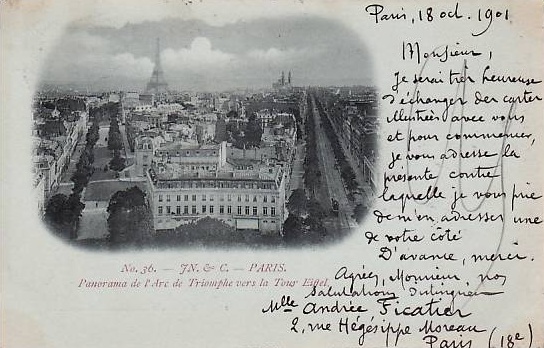 Paris, 18 oct. 1901
Monsieur,
Je serais très heureuse
d'échanger des cartes
illustrées avec vous
et pour commencer,
je vous adresse la
présente contre
laquelle je vous prie
de m'en adresser une
de votre côté
D'avance, merci.
Agréez, Monsieur, nos
Salutations distinguées
Mlle Andrée Ficatier
2, rue Hégésippe Moreau
Paris (18e)
No. 36. — JN. & C. — PARIS.
Panorama de l'Arc de Triomphe vers la Tour Eiffel